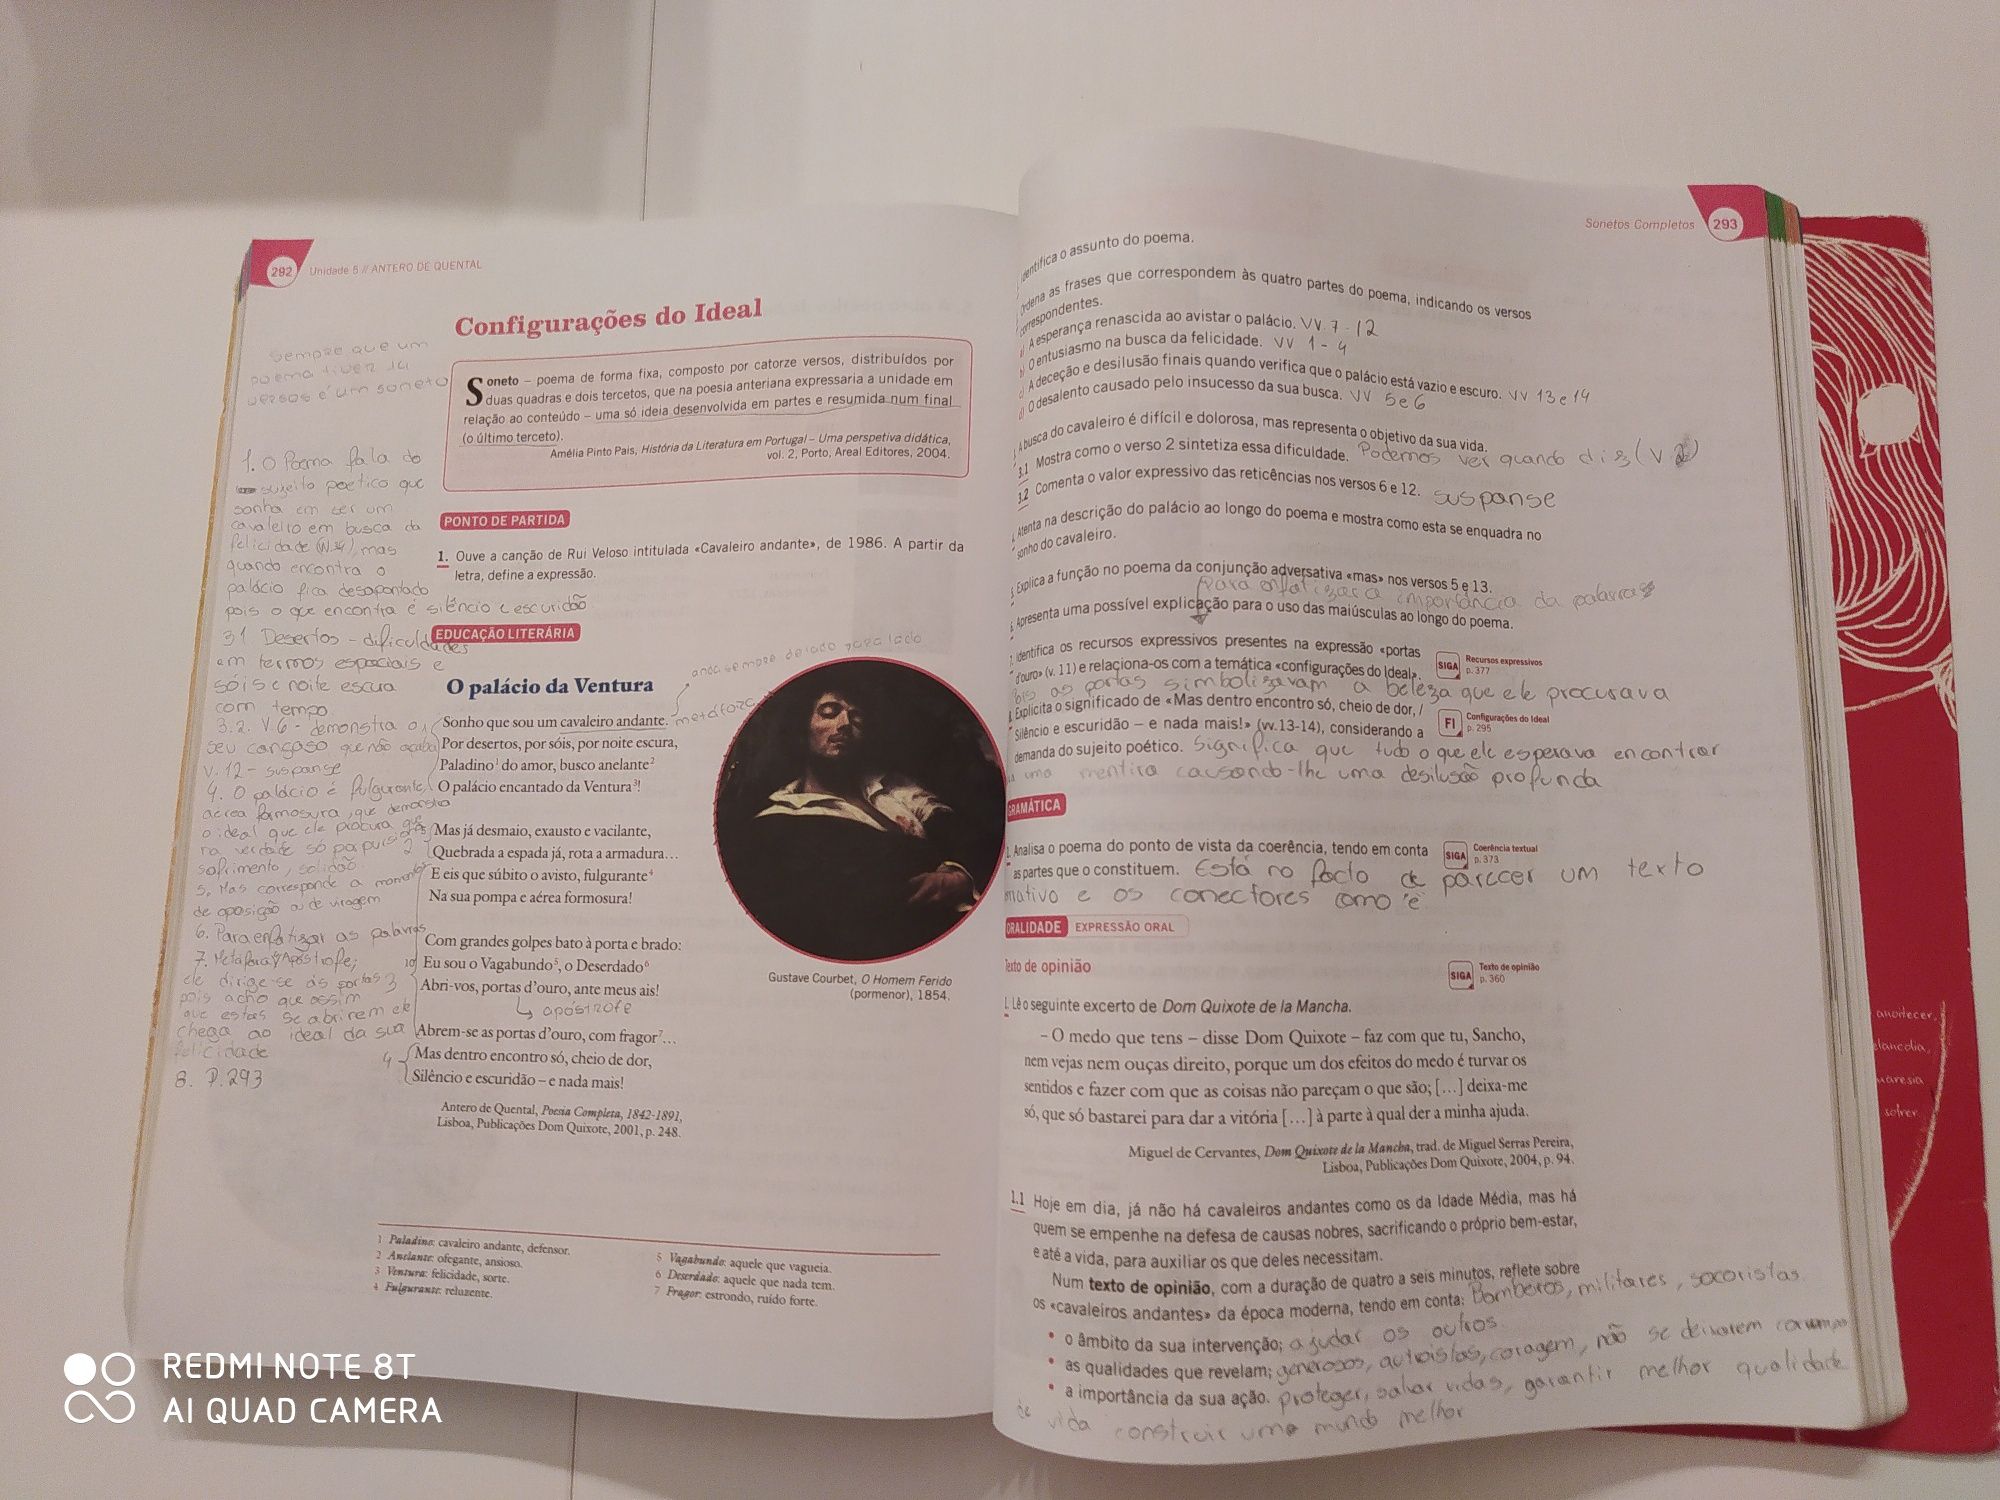 292 Unidade 5 // ANTERO DE QUENTAL
Configurações do Ideal
Sempre que um
poema tiver 14
versos é um soneto
Soneto – poema de forma fixa, composto por catorze versos, distribuídos por
duas quadras e dois tercetos, que na poesia anteriana expressaria a unidade em
relação ao conteúdo – uma só ideia desenvolvida em partes e resumida num final
(o último terceto).
Amélia Pinto Pais, História da Literatura em Portugal – Uma perspetiva didática,
vol. 2, Porto, Areal Editores, 2004.
1. O Poema fala do
sujeito poético que
sonha em ser um
cavaleiro em busca da
felicidade (V.4), mas
quando encontra o
palácio fica desapontado
pois o que encontra é silêncio e escuridão
3.1 Desertos - dificuldades
em termos espaciais e
sóis e noite escura
com tempo
3.2. V.6 - demonstra o
seu cansaço que não acaba
V.12 - suspanse
4. O palácio é fulgurante,
aérea formosura, que demonstra
o ideal que ele procura que
na verdade só
sofrimento, solidão
5. Mas corresponde a momentos
de oposição a de viragem
6. Para enfatizar as palavras
7. Metáfora Apóstrofe;
ele dirige-se às portas
pois acho que assim
que estas se abrirem ele
chega ao ideal da sua
felicidade
8. P.293
PONTO DE PARTIDA
1. Ouve a canção de Rui Veloso intitulada «Cavaleiro andante», de 1986. A partir da
letra, define a expressão.
EDUCAÇÃO LITERÁRIA
anda sempre de lado para lado
O palácio da Ventura
metáfora
1
Sonho que sou um cavaleiro andante.
Por desertos, por sóis, por noite escura,
Paladino1 do amor, busco anelante2
O palácio encantado da Ventura3!
2
Mas já desmaio, exausto e vacilante,
Quebrada a espada já, rota a armadura...
E eis que súbito o avisto, fulgurante4
Na sua pompa e aérea formosura!
Com grandes golpes bato à porta e brado:
10 Eu sou o Vagabundo5, o Deserdado6
3
Abri-vos, portas d'ouro, ante meus ais!
apóstrofe
Abrem-se as portas d'ouro, com fragor7...
4
Mas dentro encontro só, cheio de dor,
Silêncio e escuridão – e nada mais!
Antero de Quental, Poesia Completa, 1842-1891,
Lisboa, Publicações Dom Quixote, 2001, p. 248.
Gustave Courbet, O Homem Ferido
(pormenor), 1854.
1 Paladino: cavaleiro andante, defensor.
2 Anelante: ofegante, ansioso.
3 Ventura: felicidade, sorte.
4 Fulgurante: reluzente.
5 Vagabundo: aquele que vagueia.
6 Deserdado: aquele que nada tem.
7 Fragor: estrondo, ruído forte.
Sonetos Completos 293
Identifica o assunto do poema.
Ordena as frases que correspondem às quatro partes do poema, indicando os versos
correspondentes.
a) A esperança renascida ao avistar o palácio. VV. 7 - 12
b) O entusiasmo na busca da felicidade. VV 1 - 4
c) A deceção e desilusão finais quando verifica que o palácio está vazio e escuro. VV 13 e 14
d) O desalento causado pelo insucesso da sua busca. VV 5 e 6
A busca do cavaleiro é difícil e dolorosa, mas representa o objetivo da sua vida.
3.1 Mostra como o verso 2 sintetiza essa dificuldade. Podemos ver quando diz (V.2)
3.2 Comenta o valor expressivo das reticências nos versos 6 e 12. suspanse
Atenta na descrição do palácio ao longo do poema e mostra como esta se enquadra no
sonho do cavaleiro.
5. Explica a função no poema da conjunção adversativa «mas» nos versos 5 e 13.
Para enfatizar a importância da palavras
6. Apresenta uma possível explicação para o uso das maiúsculas ao longo do poema.
7. Identifica os recursos expressivos presentes na expressão «portas
d'ouro» (v. 11) e relaciona-os com a temática «configurações do Ideal».
SIGA Recursos expressivos
p. 377
Pois as portas simbolizavam a beleza que ele procurava
8. Explicita o significado de «Mas dentro encontro só, cheio de dor, /
Silêncio e escuridão – e nada mais!» (vv. 13-14), considerando a
demanda do sujeito poético. Significa que tudo o que ele esperava encontrar
FI Configurações do Ideal
p. 295
uma mentira causando-lhe uma desilusão profunda
GRAMÁTICA
1. Analisa o poema do ponto de vista da coerência, tendo em conta
as partes que o constituem. Está no facto de parecer um texto
SIGA Coerência textual
p. 373
e os conectores como e
ORALIDADE EXPRESSÃO ORAL
Texto de opinião
SIGA Texto de opinião
p. 360
1. Lê o seguinte excerto de Dom Quixote de la Mancha.
– O medo que tens – disse Dom Quixote – faz com que tu, Sancho,
nem vejas nem ouças direito, porque um dos efeitos do medo é turvar os
sentidos e fazer com que as coisas não pareçam o que são; [...] deixa-me
só, que só bastarei para dar a vitória [...] à parte à qual der a minha ajuda.
Miguel de Cervantes, Dom Quixote de la Mancha, trad. de Miguel Serras Pereira,
Lisboa, Publicações Dom Quixote, 2004, p. 94.
1.1 Hoje em dia, já não há cavaleiros andantes como os da Idade Média, mas há
quem se empenhe na defesa de causas nobres, sacrificando o próprio bem-estar,
e até a vida, para auxiliar os que deles necessitam.
Num texto de opinião, com a duração de quatro a seis minutos, reflete sobre
os «cavaleiros andantes» da época moderna, tendo em conta: Bombeiros, militares, socoristas.
• o âmbito da sua intervenção; ajudar os outros.
• as qualidades que revelam; generosos, coragem, não se deixarem
• a importância da sua ação. proteger, salvar vidas, garantir melhor qualidade
de vida construir um mundo melhor
anoitecer,
sofrer
REDMI NOTE 8T
AI QUAD CAMERA